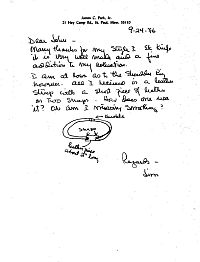 James C. Park, Jr.
21 Hay Camp Rd., St. Paul, Minn. 55110
9-24-86
Dear John -
Many thanks for my Style 3 St. knife
it is very well made and a fine
addition to my collection.
I am at loss as to the shoulder
hanger. All I received is a leather
strap with a short piece of leather
on two straps - How does one use
it? Or am I missing something?
buckle
strap
leather piece
about 2" long
Regards -
Jim